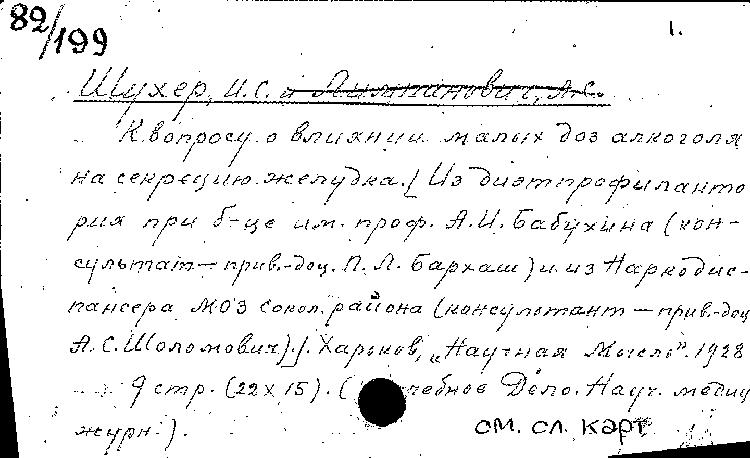 82/199
1.
Шухер, И.С. и Липманович, А.С.
К вопросу о влиянии малых доз алкоголя
на секрецию желудка. [Из диэтпрофиланто
рия при б-це им. проф. А.И. Бабухина (кон-
сультат — прив.-доц. П. Л. Бархаш) и из Наркодис-
пансера МОЗ Сокол. района (консультант — прив.-доц
А.С. Шоломович).]. Харьков, „Научная Мысль". 1928
9 стр. (22х15). ( чебное Дело. Науч. медиц
журн.).
см. сл. карт